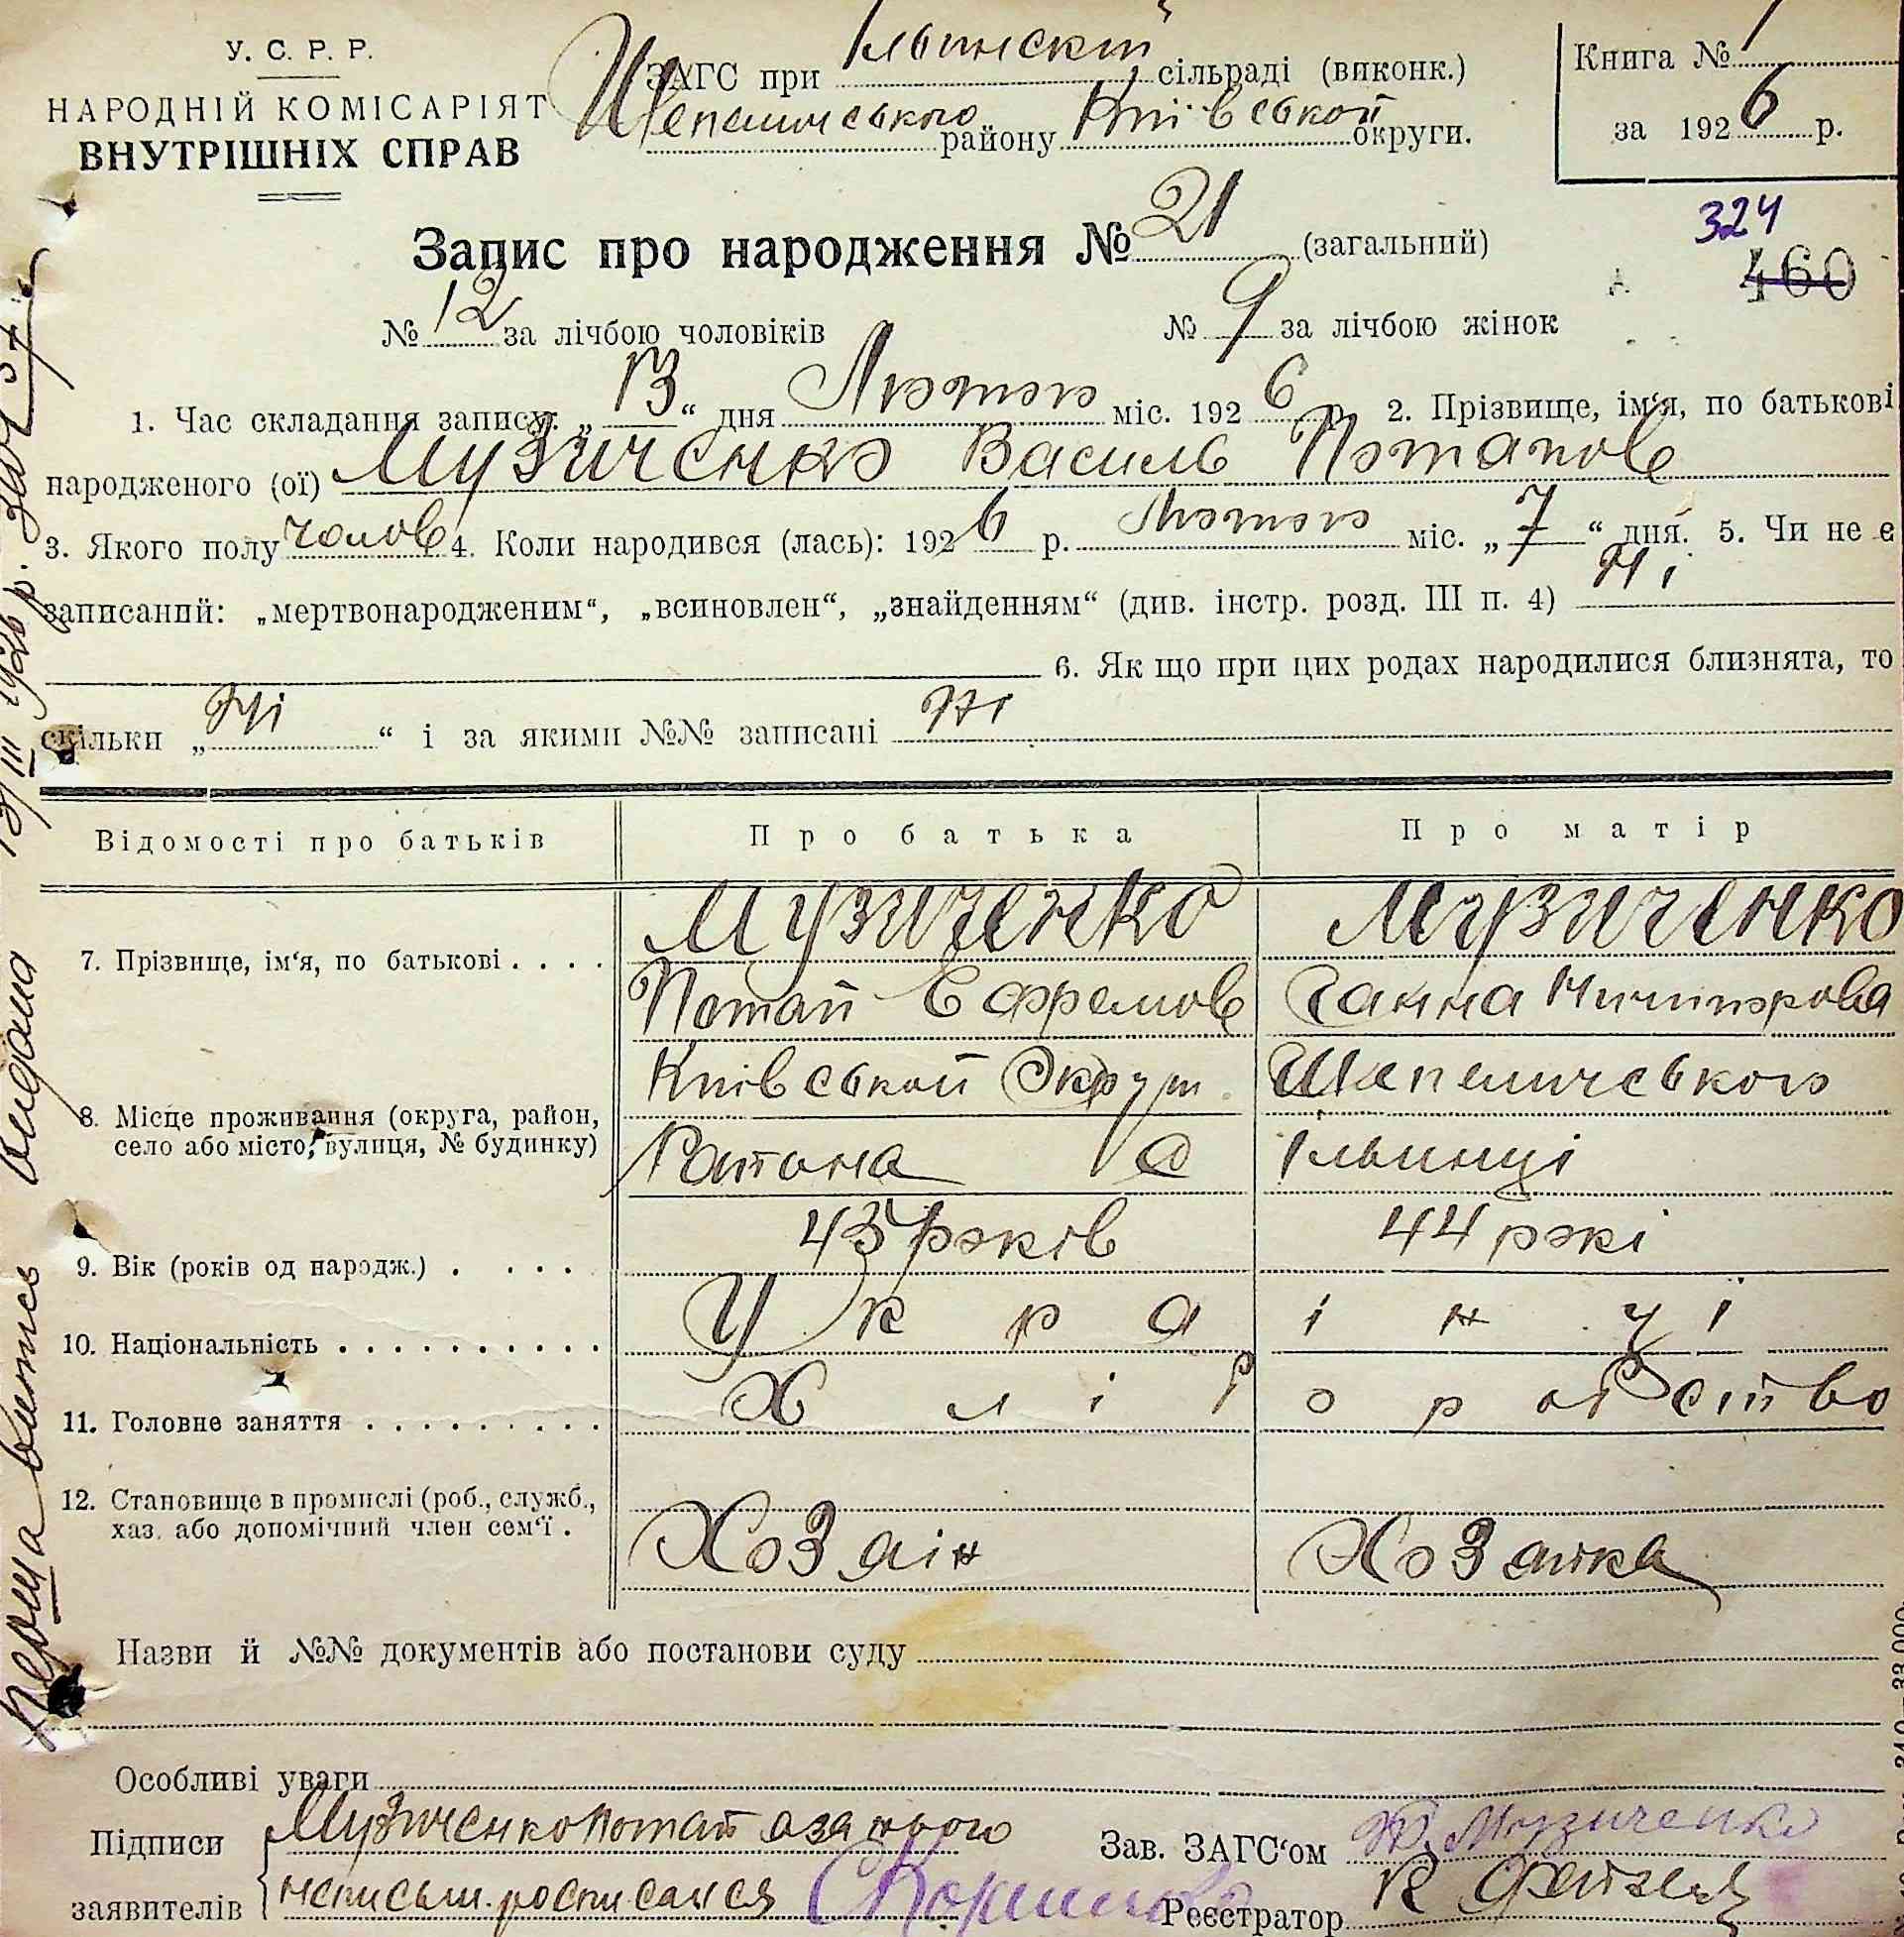 У. С. Р. Р.
НАРОДНІЙ КОМІСАРІЯТ
ВНУТРІШНІХ СПРАВ
ЗАГС при Ільинскій сільраді (виконк.)
Шепелическького району Київськой округи.
Книга № 1
за 1926 р.
324
460
Запис про народження № 21 (загальний)
№ 12 за лічбою чоловіків № 9 за лічбою жінок
1. Час складання запису: „13“ дня Лютого міс. 1926 р. 2. Прізвище, ім‘я, по батькові
народженого (ої) Музиченко Василь Потапов
3. Якого полу чолов 4. Коли народився (лась): 1926 р. Лютого міс. „7“ дня. 5. Чи не є
записаний: „мертвонародженим“, „всиновлен“, „знайденням“ (див. інстр. розд. III п. 4) Ні
6. Як що при цих родах народилися близнята, то
скільки „ні“ і за якими №№ записані ні
Відомості про батьків Про батька Про матір
7. Прізвище, ім‘я, по батькові . . . . Музиченко Музиченко
Потап Ефремов Ганна Ничипорова
8. Місце проживання (округа, район, село або місто, вулиця, № будинку) Київськой Округ. Шепеличського
Района С Ільинці
9. Вік (років од народж.) . . . . . 43 років 44 рокі
10. Національність . . . . . . . . . . Українці
11. Головне заняття . . . . . . . . . Хліборобство
12. Становище в промислі (роб., служб., хаз. або допомічний член сем‘ї . Хозаін Хозаика
Назви й №№ документів або постанови суду
Особливі уваги
Підписи заявителів Музиченко Потап а за нього
неписьм. росписался
Зав. ЗАГС‘ом Музиченко
Реєстратор
Перша випись видана 13/III 1926 р.